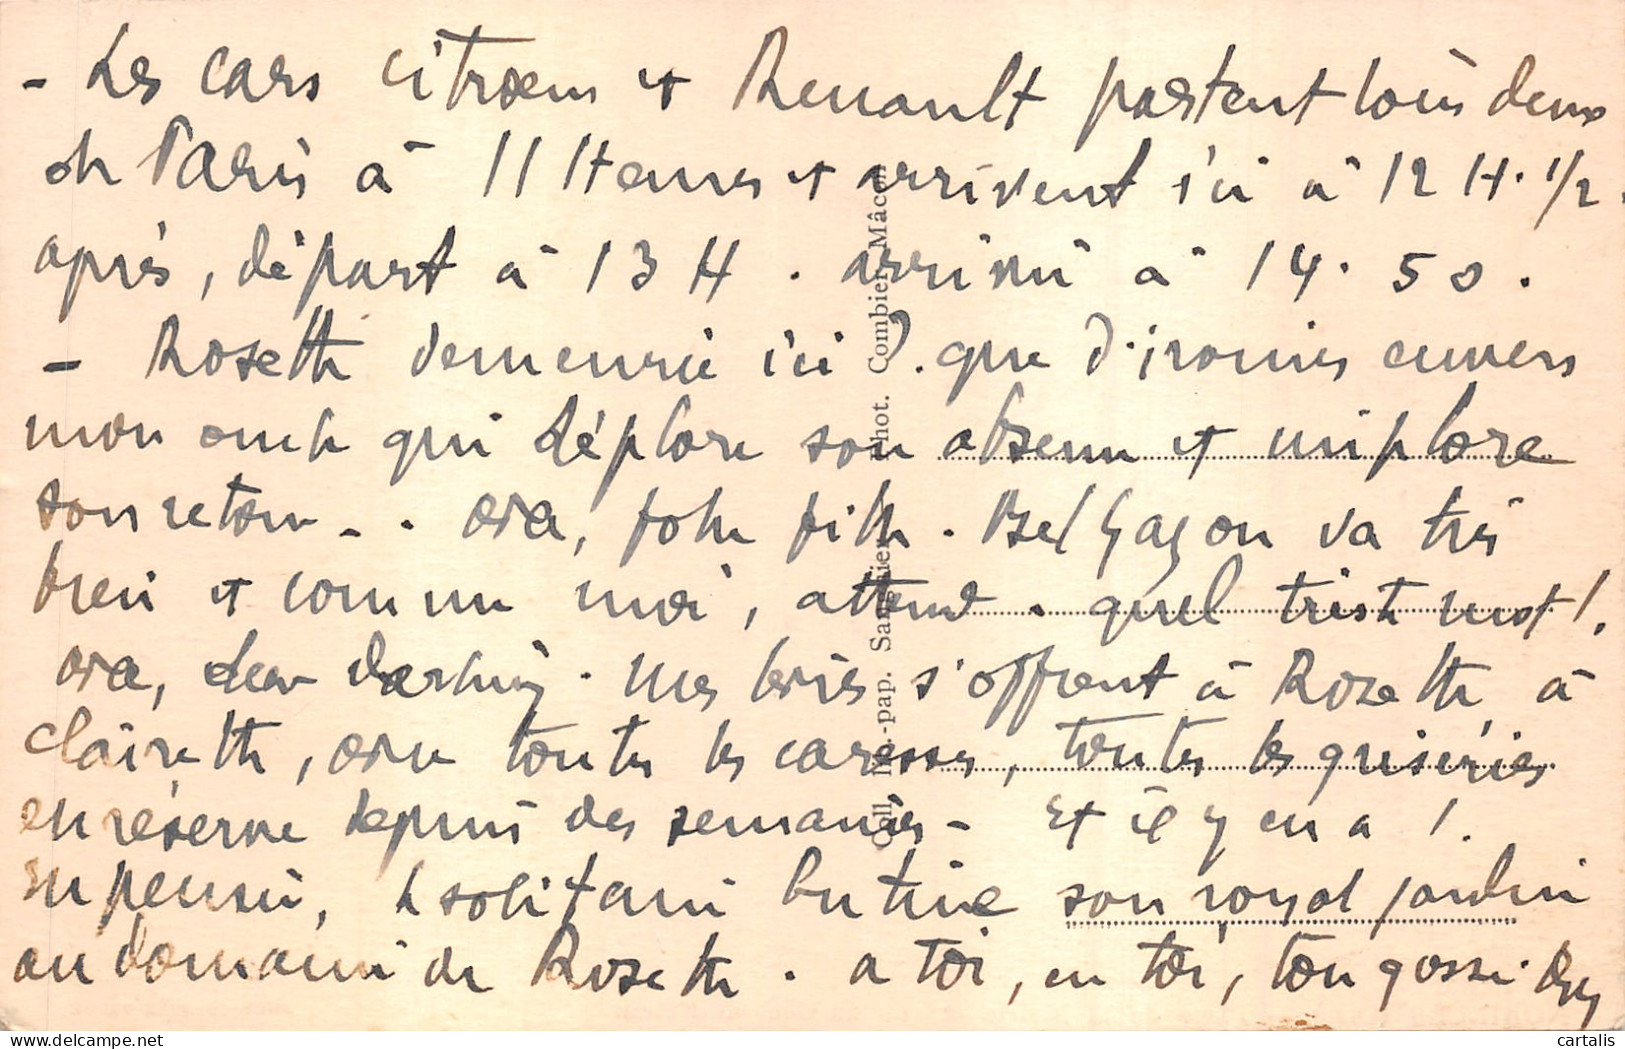 - Les cars Citroën et Renault partent tous deux
de Paris à 11 Heures et arrivent ici à 12 H. 1/2.
après, départ à 13 H. arrivée à 14.50.
- Rosette demeurée ici ? que d'ironies envers
mon oncle qui déplore son absence et implore
son retour - . ora, folle fille. Bel Gaçon va très
bien et comme moi, attend. quel triste mot !.
ora, dear darling. Mes lèvres s'offrent à Rosette, à
Clairette, avec toutes les caresses, toutes les griseries
en réserve depuis des semaines - Et il y en a !.
en pensée, le solitaire butine son royal jardin
au domaine de Rosette. a toi, en toi, ton gosse.
Coll. -pap. Phot. Combier Mâcon
cartalis